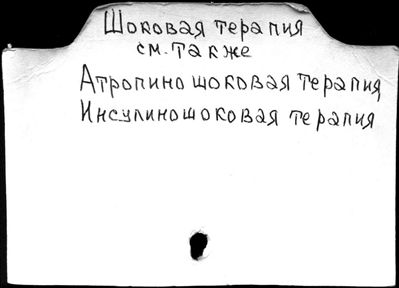 Шоковая терапия
см. также
Атропиношоковая терапия
Инсулиношоковая терапия